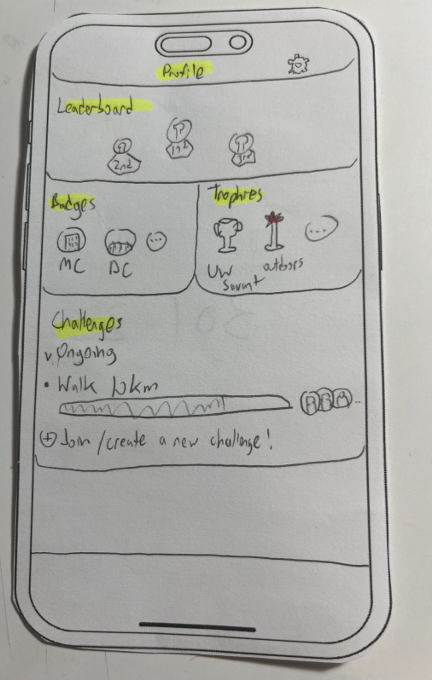 Profile
Leaderboard
1st
2nd
3rd
Badges
Trophies
MC
BC
UW
Savant
outdoors
Challenges
Ongoing
Walk 10km
Join/create a new challenge!